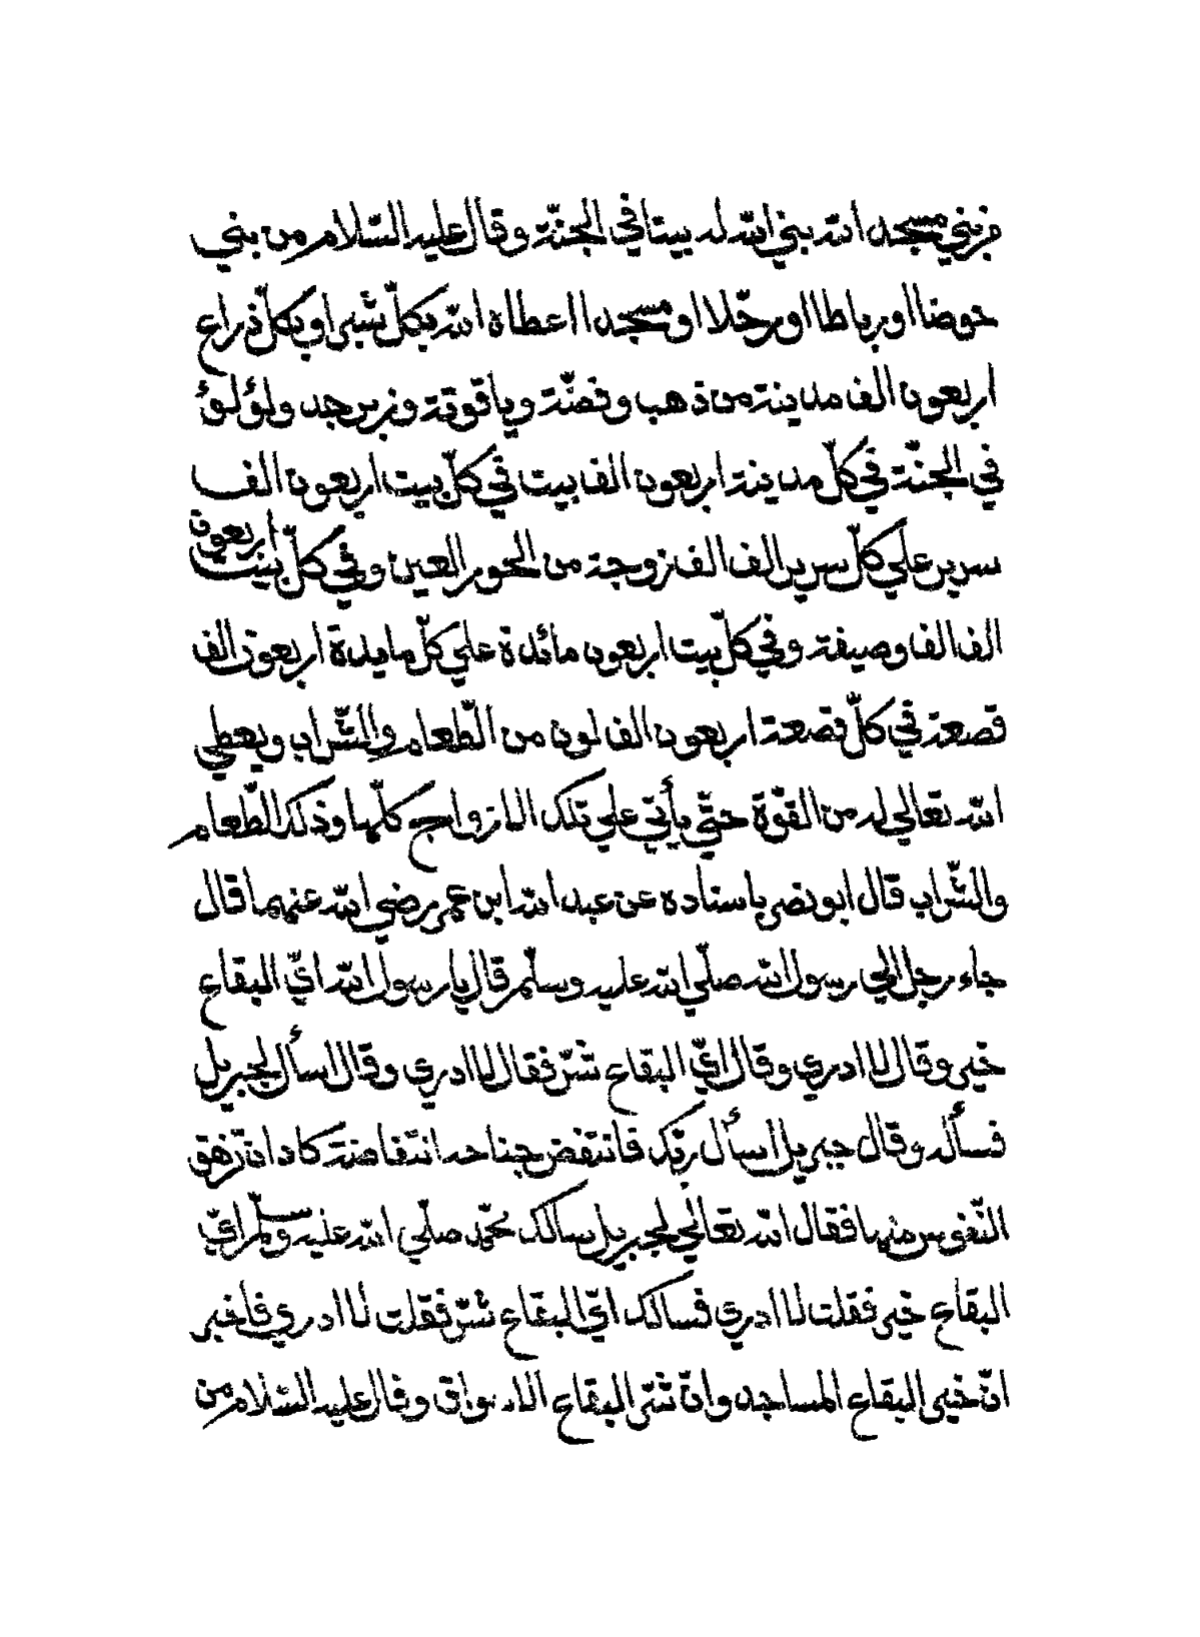 من بني مسجد الله بني الله له بيتا في الجنّة وقال عليه السّلام من بني
حوضا او رباطا او رحّلا او مسجدا اعطاه الله بكلّ شبر او بكلّ ذراع
اربعون الف مدينة من ذهب وفضّة وياقوتة وزبرجد ولؤلؤ
في الجنّة في كلّ مدينة اربعون الف بيت في كلّ بيت اربعون الف
سرير علي كلّ سرير الف الف زوجة من الحور العين وفي كلّ بيت اربعون
الف الف وصيفة وفي كلّ بيت اربعون مائدة علي كلّ مايدة اربعون الف
قصعة في كلّ قصعة اربعون الف لون من الطّعام والشّراب ويعطي
الله تعالي له من القوّة حتّي يأتي علي تلك الازواج كلّها وذلك الطّعام
والشّراب قال ابو نصر باسناده عن عبد الله ابن عمر رضي الله عنهما قال
جاء رجل الي رسول الله صلّي الله عليه وسلّم قال يا رسول الله ايّ البقاع
خير وقال لا ادري وقال ايّ البقاع شرّ فقال لا ادري وقال اسأل لجبريل
فسأله وقال جبريل اسأل ربّك فانتفض جناحه انتفاضة كاد ان تزهق
النّفوس منها فقال الله تعالي لجبريل سالك محمّد صلّي الله عليه وسلّم ايّ
البقاع خير فقلت لا ادري فسالك ايّ البقاع شرّ فقلت لا ادري فاخبر
انّ خير البقاع المساجد وانّ شرّ البقاع الاسواق وقال عليه السّلام من